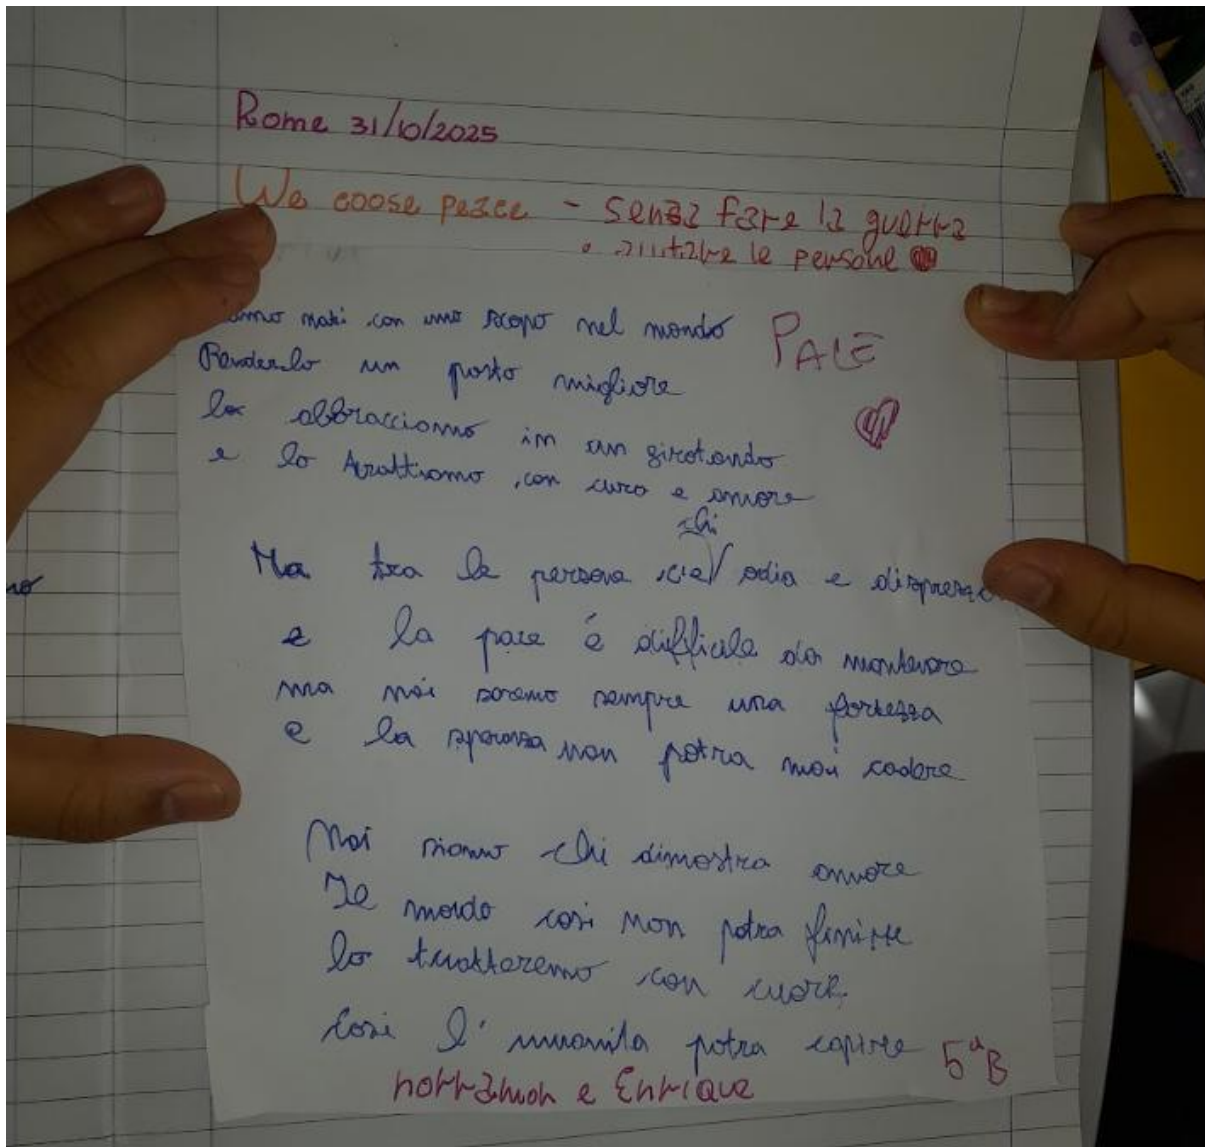 Rome 31/10/2025
We coose peace - senza fare la guerra
• aiutare le persone
nati con uno scopo nel mondo
PACE
Renderlo un posto migliore
lo abbracciamo in un girotondo
e lo trattiamo con cura e amore
chi
Ma tra le persone c'è odia e disprezz
e la pace è difficile da mantenere
ma noi saremo sempre una fortezza
e la speranza non potra mai cadere
Noi siamo chi dimostra amore
Il mondo cosi non potra finire
lo tratteremo con cuore
Cosi l'umanita potra capire
5ªB
e Enrique